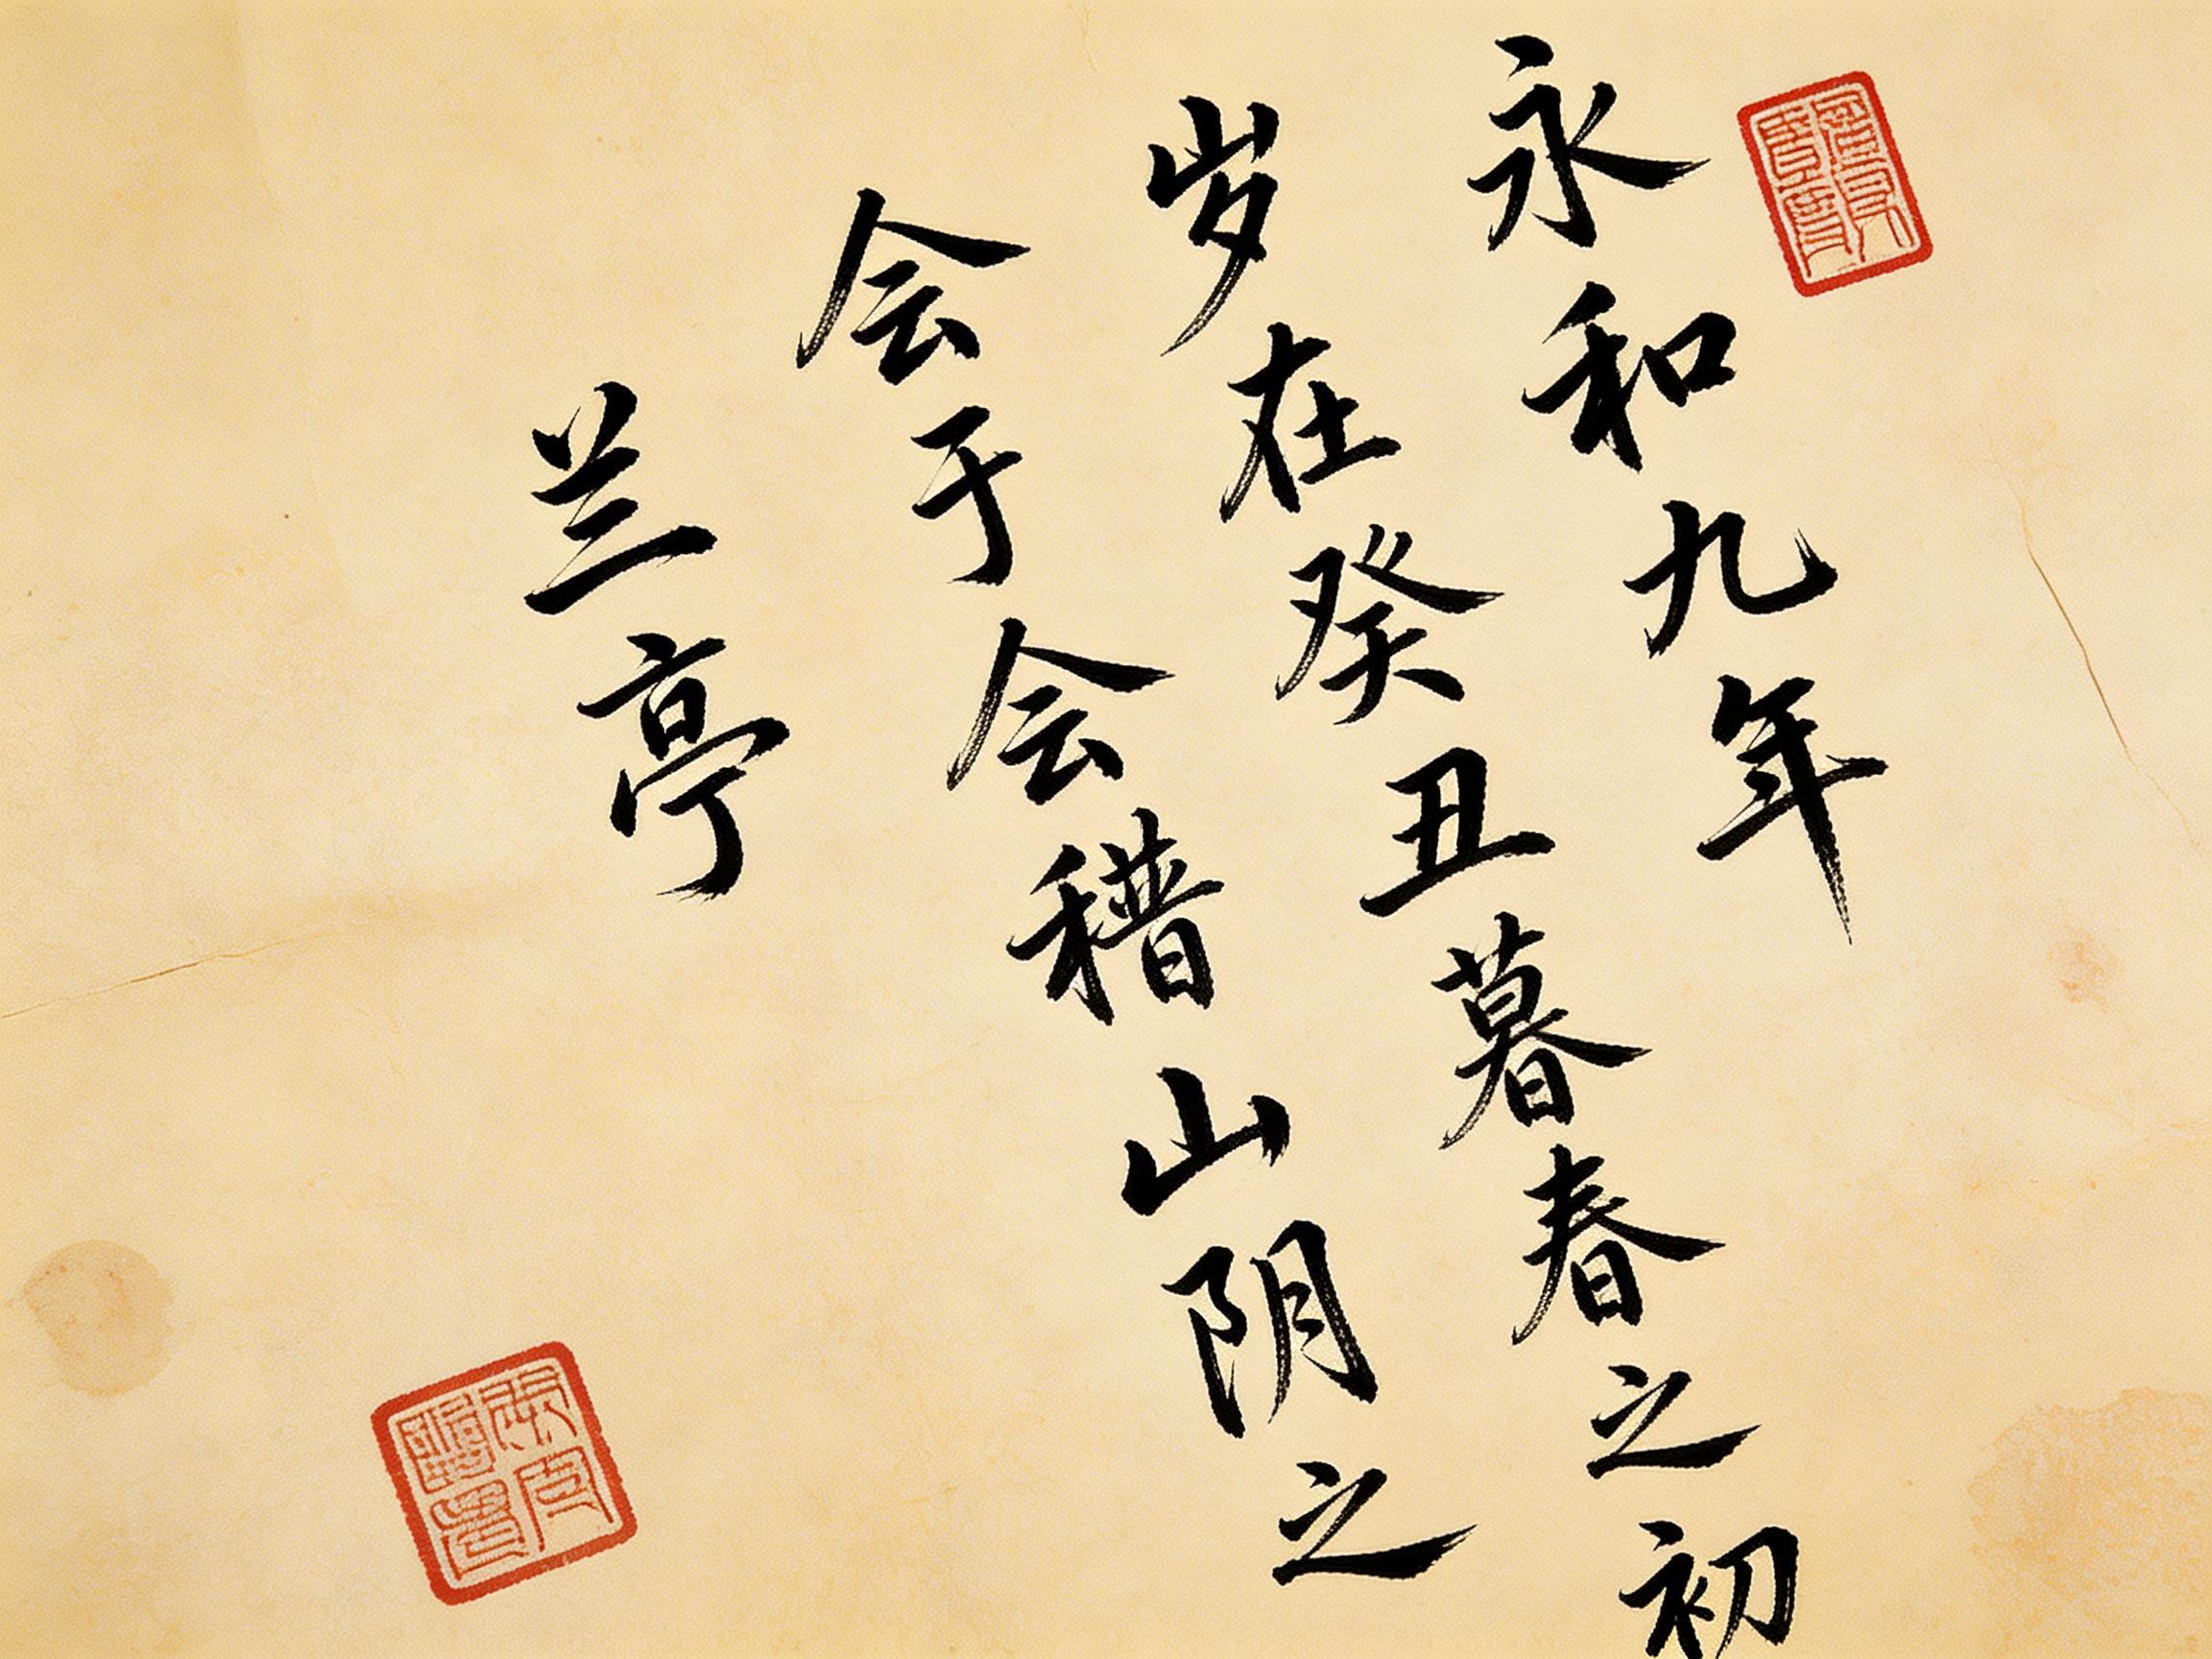 永和九年
岁在癸丑暮春之初
会于会稽山阴之
兰亭